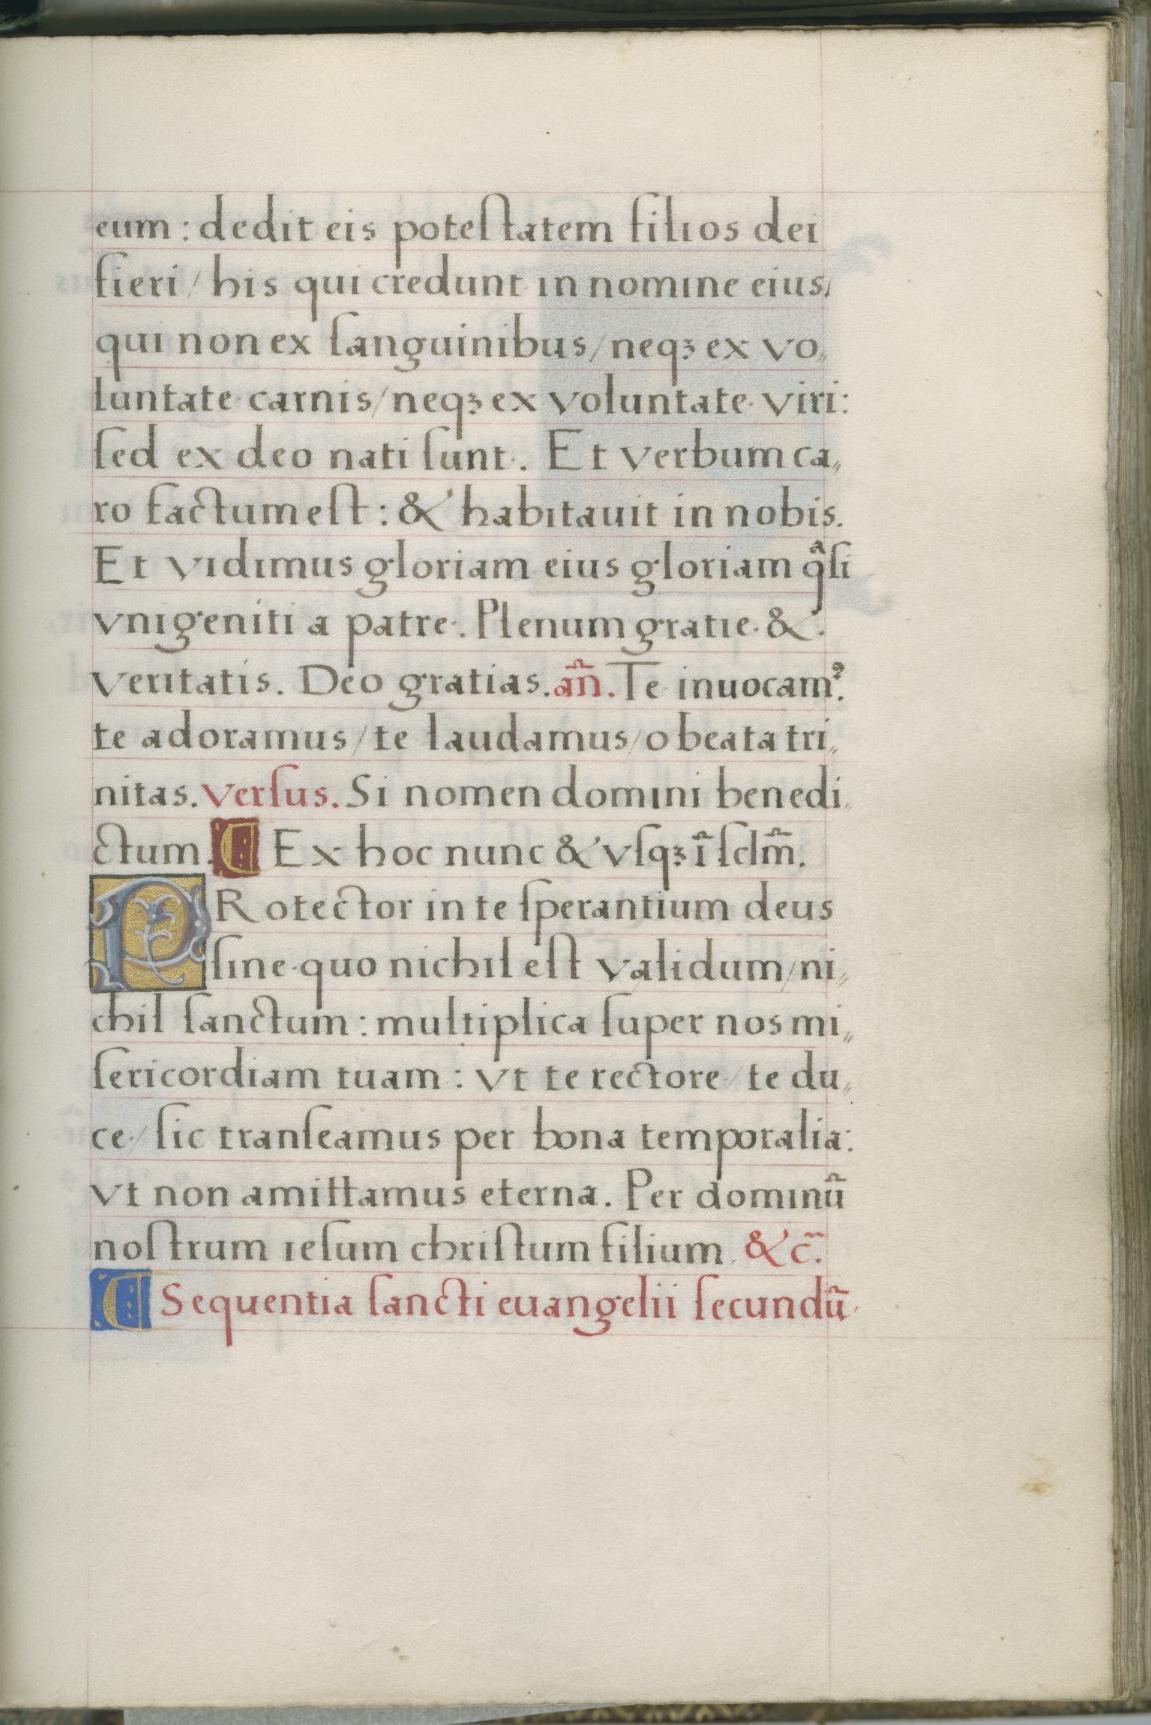 eum : dedit eis poteſtatem filios dei
fieri / his qui credunt in nomine eius /
qui non ex ſanguinibus / neqꝫ ex vo„
luntate carnis / neqꝫ ex voluntate viri:
ſed ex deo nati ſunt . Et verbum ca„
ro factum eſt : & habitauit in nobis.
Et vidimus gloriam eius gloriam qᷓſi
vnigeniti a patre . Plenum gratie &
veritatis . Deo gratias . añ . Te inuocamꝰ.
te adoramus / te laudamus / o beata tri„
nitas . verſus . Si nomen domini benedi„
ctum . Ex hoc nunc & vſqꝫ ī ſclm̄.
PRotector in te ſperantium deus
ſine quo nichil eſt validum / ni„
chil ſanctum : multiplica ſuper nos mi„
ſericordiam tuam : vt te rectore / te du„
ce / ſic tranſeamus per bona temporalia:
vt non amittamus eterna . Per dominū
noſtrum ieſum chriſtum filium . &c̄.
Sequentia ſancti euangelii ſecundū